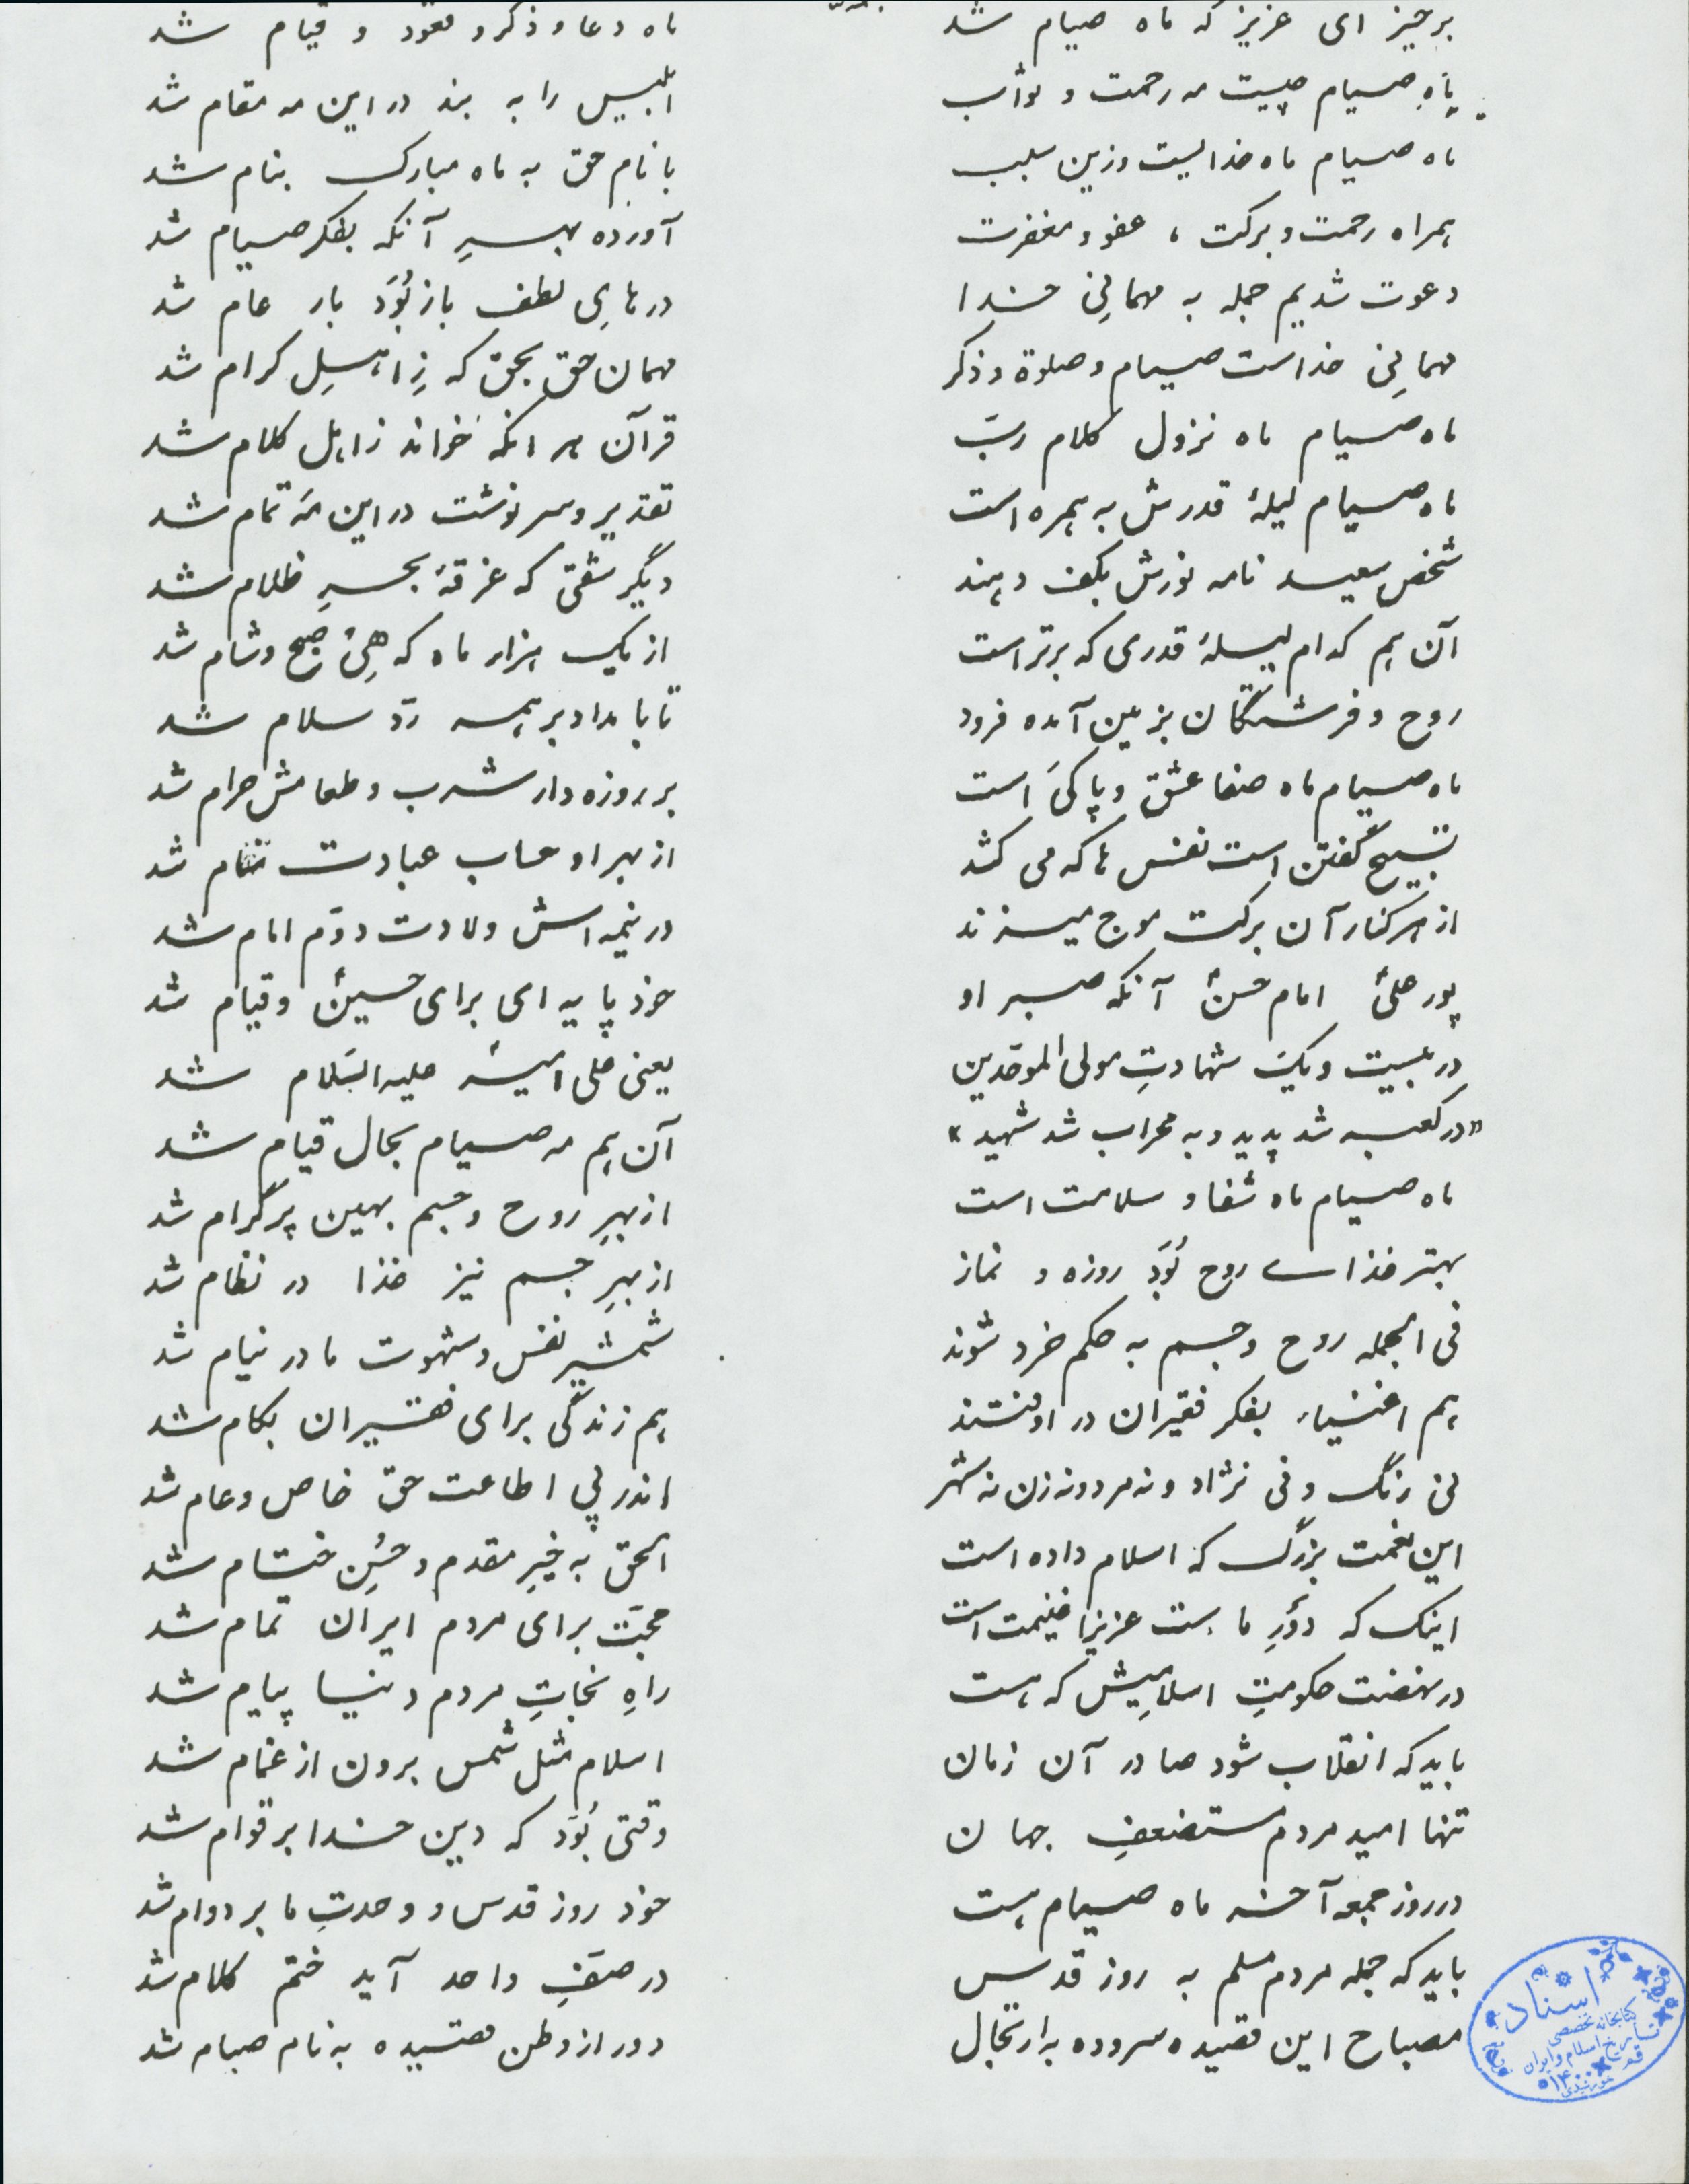 برخیز ای عزیز که ماه صیام شد ماه دعا و ذکر و قعود و قیام شد
ماهِ صیام چیست مه رحمت و ثواب ابلیس را به بند در این مه مقام شد
ماه صیام ماه خدائیست وزین سبب با نام حق به ماه مبارک بنام شد
همراه رحمت و برکت، عفو و مغفرت آورده بهرِ آنکه بفکر صیام شد
دعوت شدیم جمله به مهمانیِ خدا درهایِ لطف باز بُوَد بار عام شد
مهمانیِ خداست صیام و صلوة و ذکر مهمان حق بحق که زِ اهلِ کرام شد
ماه صیام ماه نزول کلام ربّ قرآن هر انکه خواند ز اهل کلام شد
ماه صیام لیلهٔ قدرش به همره است تقدیر و سرنوشت در این مَه تمام شد
شخص سعید نامه نورش بکف دهند دیگر شقی که غرقهٔ بحرِ ظلام شد
آن هم کدام لیلهٔ قدری که برتر است از یک هزار ماه که هِیْ صبح و شام شد
روح و فرشتگان بزمین آمده فرود تا بامداد بر همه ردّ سلام شد
ماه صیام ماه صفا عشق و پاکی است بر روزه دار شرب و طعامش حرام شد
تسبیح گفتن است نفس ها که می کشد از بهر او حساب عبادت تمام شد
از هر کنار آن برکت موج میزند در نیمه اش ولادت دوّم امام شد
پور علیؑ امام حسنؑ آنکه صبر او خود پایه ای برای حسینؑ و قیام شد
در بیست و یک شهادتِ مولی الموحّدین یعنی علی امیر علیه السّلام شد
«در کعبه شد پدید و به محراب شد شهید» آن هم مه صیام بحال قیام شد
ماه صیام ماه شفا و سلامت است از بهرِ روح و جسم بهین پرگرام شد
بهتر غذای روح بُوَد روزه و نماز از بهرِ جسم نیز غذا در نظام شد
فی الجمله روح و جسم به حکم خرد شوند شمشیر نفس و شهوت ما در نیام شد
هم اغنیاء بفکر فقیران در اوفتند هم زندگی برای فقیران بکام شد
نی رنگ و نی نژاد و نه مرد و نه زن نه شهر اندر پی اطاعت حق خاص و عام شد
این نعمت بزرگ که اسلام داده است الحق به خیرِ مقدم و حُسنِ ختام شد
اینک که دَوْرِ ما ست عزیزا غنیمت است حجّت برای مردم ایران تمام شد
در نهضت حکومتِ اسلامیش که هست راهِ نجاتِ مردم دنیا پیام شد
باید که انقلاب شود صادر آن زمان اسلام مثل شمس برون از غمام شد
تنها امید مردم مستضعفِ جهان وقتی بُوَد که دین خدا بر قوام شد
در روز جمعه آخر ماه صیام هست خود روز قدس و وحدتِ ما بر دوام شد
باید که جمله مردم مسلم به روز قدس در صفّ واحد آید ختم کلام شد
مصباح این قصیده سروده به ارتجال دور از وطن قصیده به نام صیام شد
اسناد
کتابخانه تخصصی
تاریخ اسلام و ایران
قم
۱۴۰۰